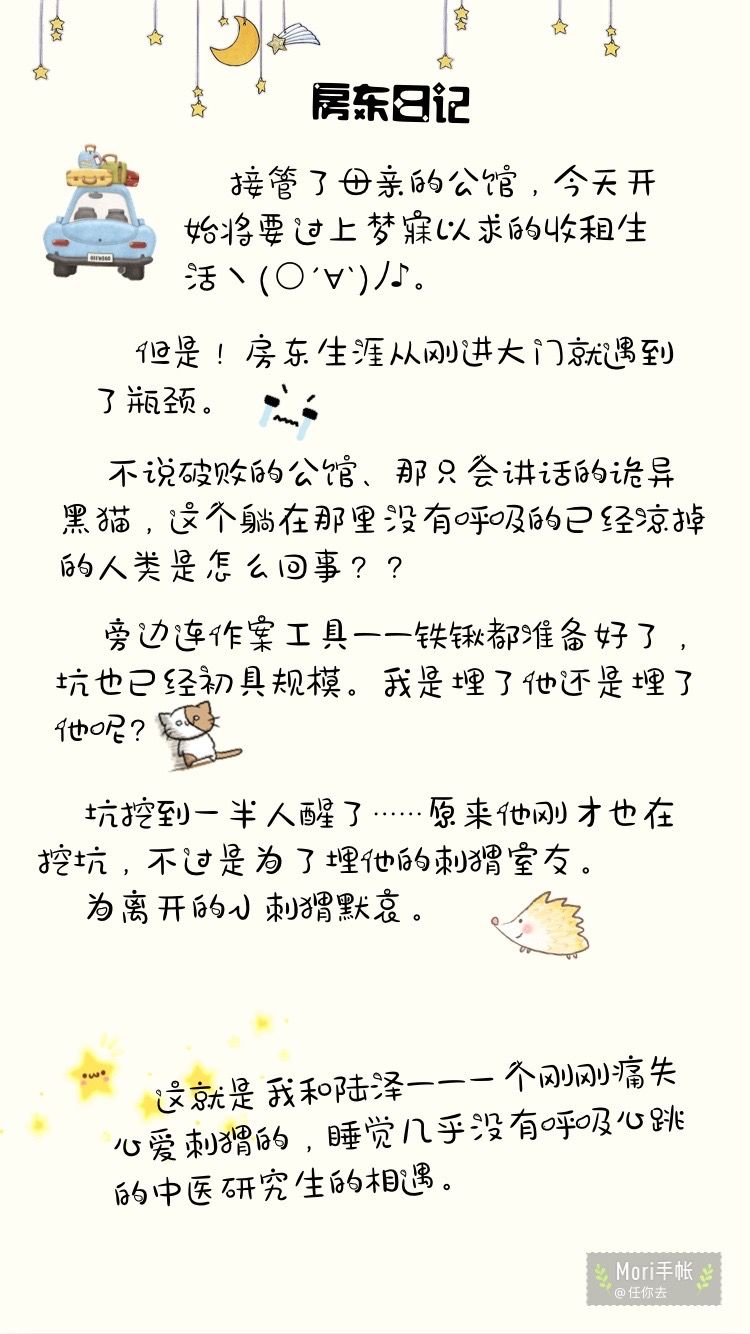 房东日记
接管了母亲的公馆，今天开
始将要过上梦寐以求的收租生
活ヽ(○´∀`)ﾉ♪。
但是！房东生涯从刚进大门就遇到
了瓶颈。
不说破败的公馆、那只会讲话的诡异
黑猫，这个躺在那里没有呼吸的已经凉掉
的人类是怎么回事？？
旁边连作案工具——铁锹都准备好了，
坑也已经初具规模。我是埋了他还是埋了
他呢？
坑挖到一半人醒了……原来他刚才也在
挖坑，不过是为了埋他的刺猬室友。
为离开的小刺猬默哀。
这就是我和陆泽——一个刚刚痛失
心爱刺猬的，睡觉几乎没有呼吸心跳
的中医研究生的相遇。
Mori手帐
@任你去